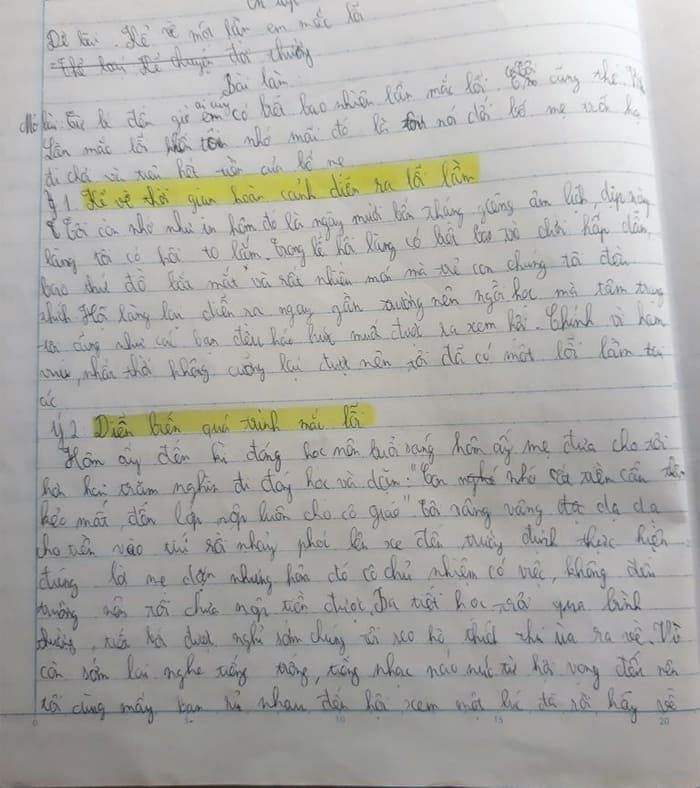 Đề bài. Kể về một lần em mắc lỗi
Thể loại Kể chuyện đời thường
Bài làm
Mở bài: Từ bé đến giờ ai cũng có biết bao nhiêu lần mắc lỗi. tôi cũng thế.
Lần mắc lỗi tôi nhớ mãi đó là nói dối bố mẹ
đi chơi và tiêu hết tiền của bố mẹ
ý 1. Kể về thời gian hoàn cảnh diễn ra lỗi lầm
Tôi còn nhớ như in hôm đó là ngày mười bốn tháng giêng âm lịch, dịp này
làng tôi có hội to lắm. trong lễ hội làng có biết bao trò chơi hấp dẫn,
bao thứ đồ bắt mắt và rất nhiều mà trẻ con chúng tôi đều
thích Hội làng lại diễn ra ngay gần trường nên ngồi học mà tâm trạng
tôi cũng như các bạn đều háo hức muốn được ra xem hội. Chính vì ham
vui, nhất thời không cưỡng lại được nên tôi đã có một lỗi lầm tai
ác
ý 2. Diễn biến quá trình mắc lỗi
Hôm ấy đến kì đóng học nên buổi sáng hôm ấy mẹ đưa cho tôi
hơn hai trăm nghìn đi đóng học và dặn: "Con nhớ cất tiền cẩn thận
kẻo mất, đến lớp nộp luôn cho cô giáo" tôi vâng vâng dạ dạ
cho tiền vào túi rồi nhảy phóc lên xe đến trường định thực hiện
đúng lời mẹ dặn nhưng hôm đó cô chủ nhiệm có việc, không đến
trường nên tôi chưa nộp tiền được. Ba tiết học trôi qua bình
thường, tiết bốn được nghỉ sớm chúng tôi reo hò thích thú ùa ra về. Vì
còn sớm lại nghe tiếng trống, tiếng nhạc náo nức từ hội vọng đến nên
tôi cùng mấy bạn rủ nhau đến hội xem một lúc đã rồi hãy về